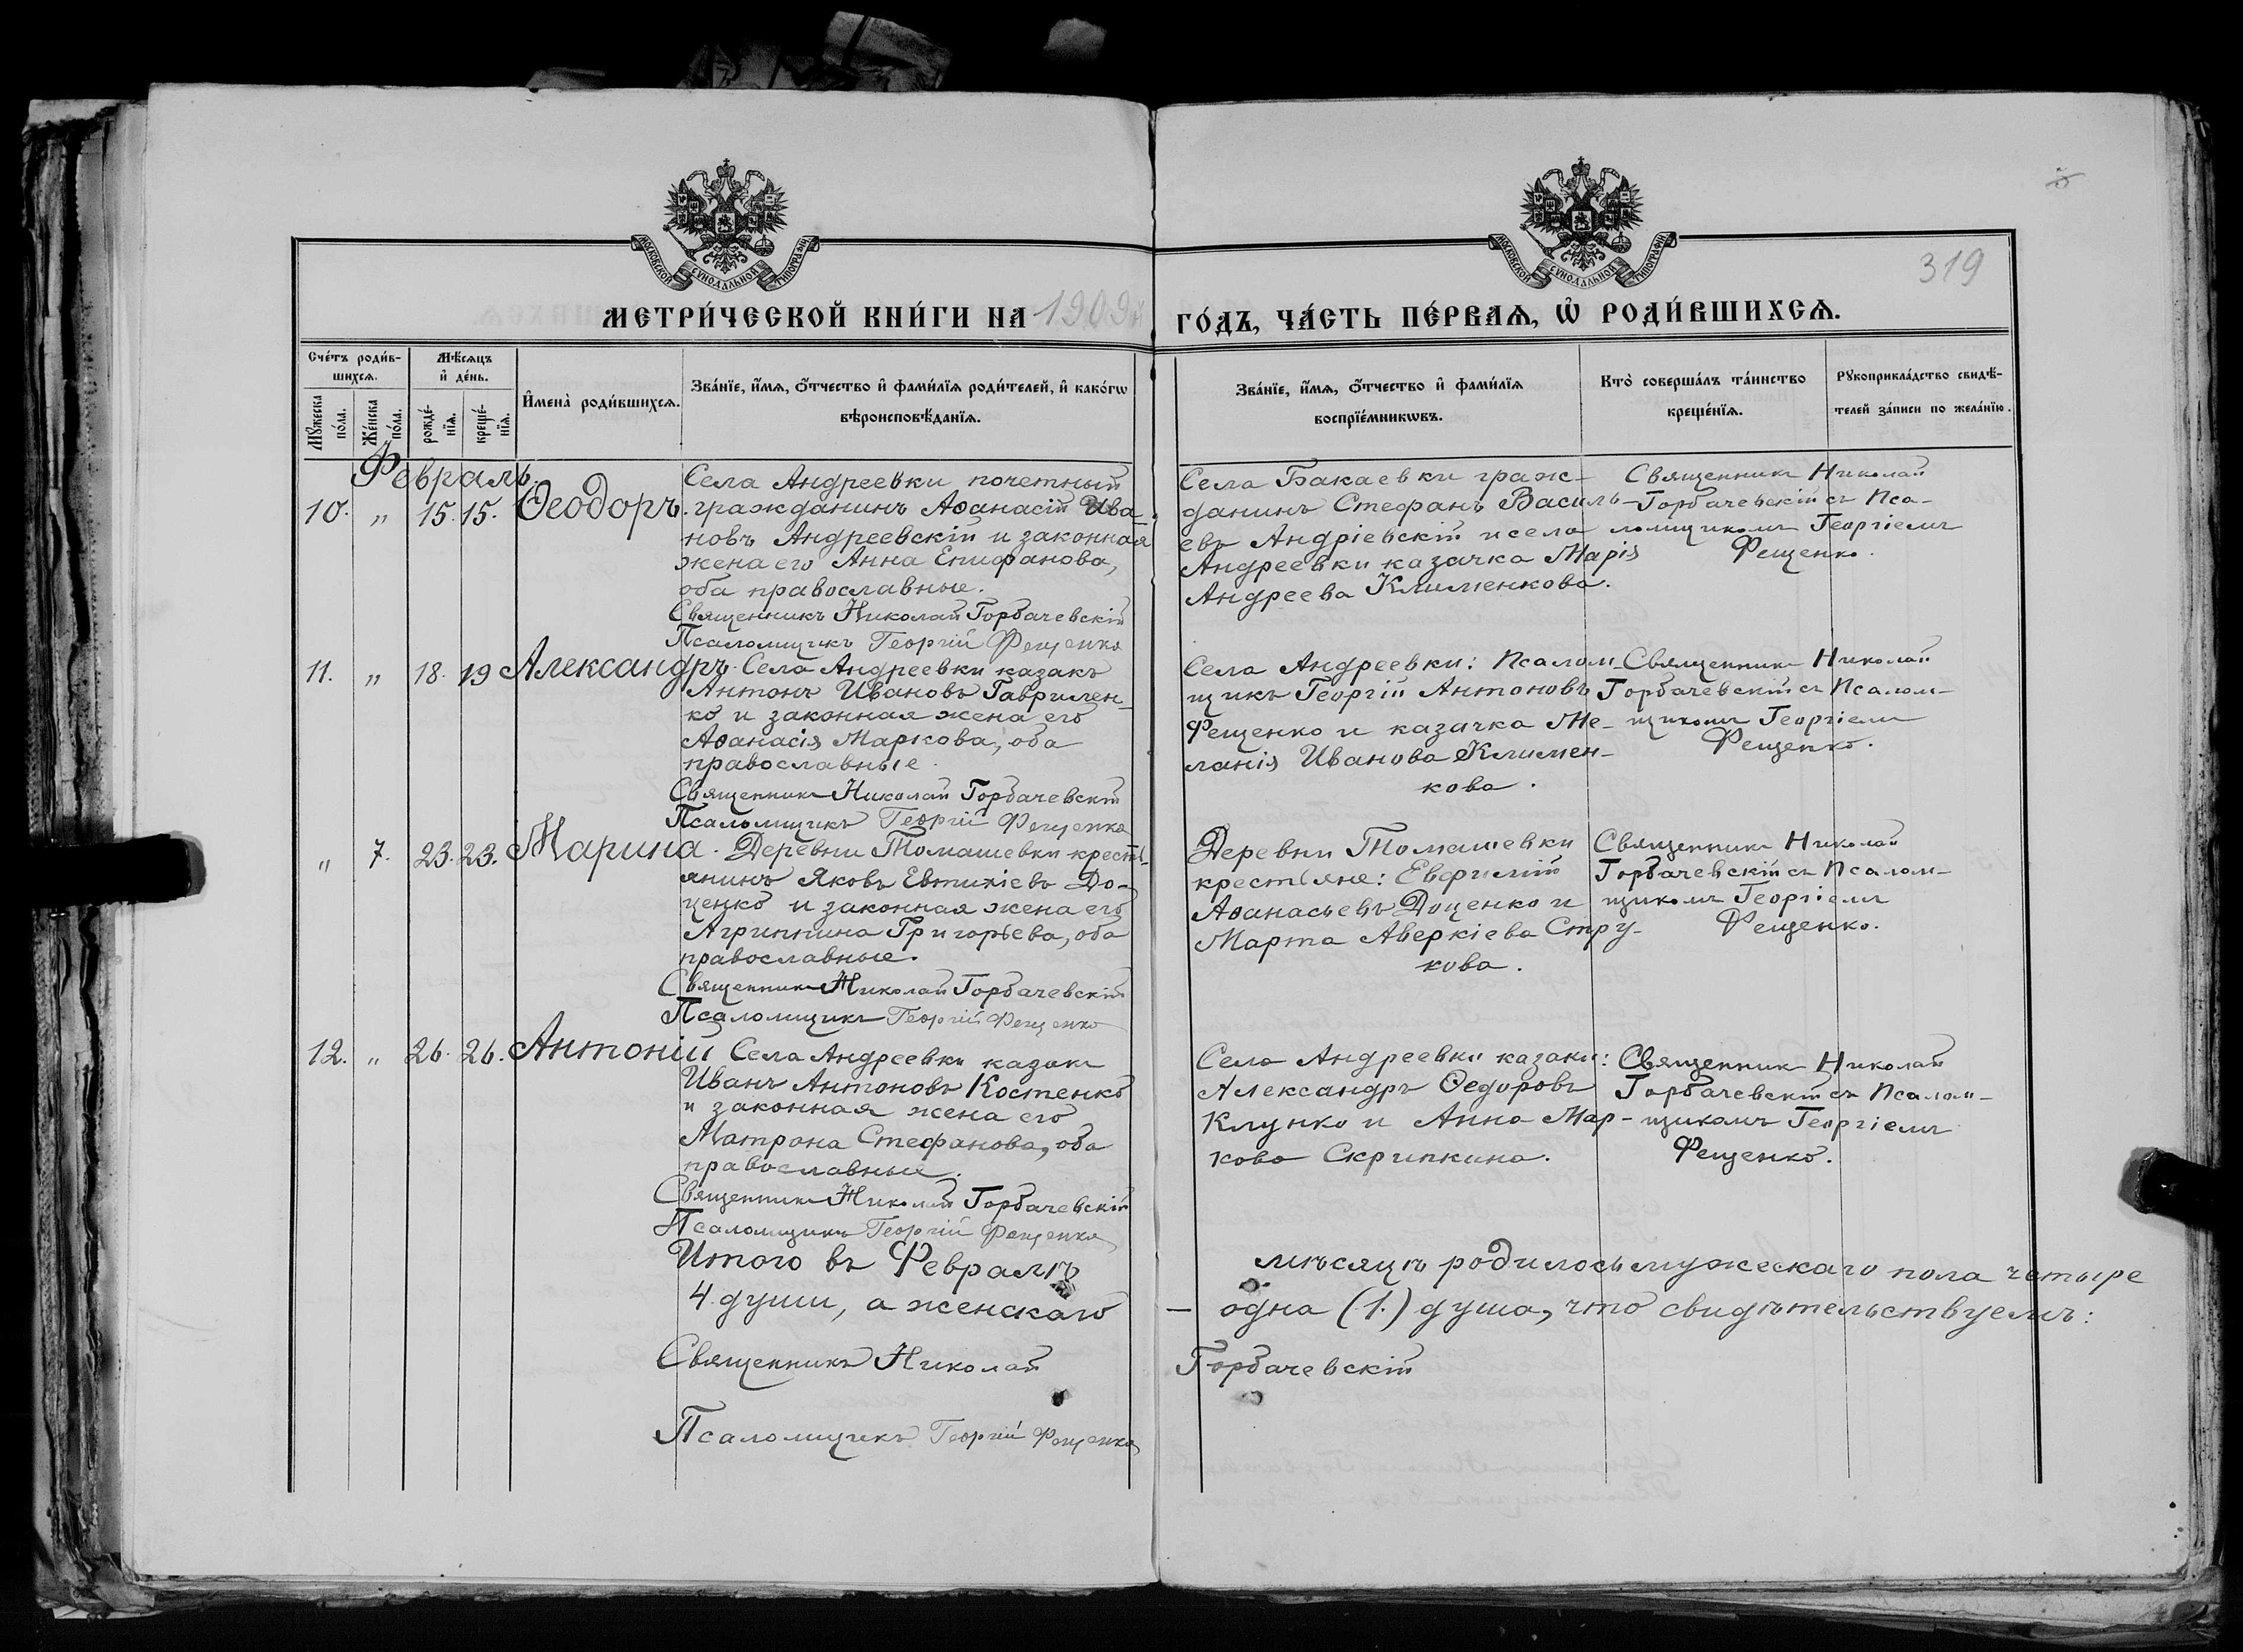 319
МОСКОВСКОЙ СѴНОДАЛЬНОЙ ТИПОГРАФІИ
МОСКОВСКОЙ СѴНОДАЛЬНОЙ ТИПОГРАФІИ
МЕТРИ́ЧЕСКОЙ КНИ́ГИ НА 1909й
ГО́ДЪ, ЧА́СТЬ ПЕ́РВАѦ, Ѡ҆ РОДИ́ВШИХСѦ.
Сче́тъ роди́в-
шихсѧ.
Мꙋ́жеска по́ла.
Же́нска по́ла.
Мѣ́сѧцъ
и҆ де́нь.
рожде́-
нїѧ.
креще́-
нїѧ.
И҆мена̀ роди́вшихсѧ.
Зва́нїе, и҆́мѧ, ѻ҆́тчество и҆ фами́лїѧ роди́телей, и҆ како́гѡ
вѣроисповѣ́данїѧ.
Зва́нїе, и҆́мѧ, ѻ҆́тчество и҆ фами́лїѧ
воспрїе́мникѡвъ.
Кто̀ соверша́лъ та́инство
креще́нїѧ.
Рꙋкоприкла́дство свидѣ́-
телей за́писи по жела́нїю.
Февраль.
10. „ 15. 15. Ѳеодоръ.
Села Андреевки почетный
гражданинъ Аѳанасій Ива-
новъ Андреевскій и законная
жена его Анна Епифанова,
оба православные.
Священникъ Николай Горбачевскій
Псаломщикъ Георгій Фещенко
Села Бакаевки граж-
данинъ Стефанъ Василь-
евъ Андріевскій и села
Андреевки казачка Марія
Андреева Клименкова.
Священникъ Николай
Горбачевскій съ Пса-
ломщикомъ Георгіемъ
Фещенко.
11. „ 18. 19 Александръ.
Села Андреевки казакъ
Антонъ Ивановъ Гаврилен-
ко и законная жена его
Аѳанасія Маркова, оба
православные.
Священникъ Николай Горбачевскій
Псаломщикъ Георгій Фещенко
Села Андреевки: Псалом-
щикъ Георгій Антоновъ
Фещенко и казачка Ме-
ланія Иванова Климен-
кова.
Священникъ Николай
Горбачевскій съ Псалом-
щикомъ Георгіемъ
Фещенко.
„ 7. 23. 23. Марина.
Деревни Томашевки кресть-
янинъ Яковъ Евтихіевъ До-
ценко и законная жена его
Агриппина Григорьева, оба
православные.
Священникъ Николай Горбачевскій
Псаломщикъ Георгій Фещенко
Деревни Томашевки
крестьяне: Евфимій
Аѳанасьевъ Доценко и
Марта Аверкіева Стру-
кова.
Священникъ Николай
Горбачевскій съ Псалом-
щикомъ Георгіемъ
Фещенко.
12. „ 26. 26. Антоній
Села Андреевки казакъ
Иванъ Антоновъ Костенко
и законная жена его
Матрона Стефанова, оба
православные.
Священникъ Николай Горбачевскій
Псаломщикъ Георгій Фещенко
Села Андреевки казаки:
Александръ Ѳедоровъ
Клунко и Анна Мар-
кова Скрипкина.
Священникъ Николай
Горбачевскій съ Псалом-
щикомъ Георгіемъ
Фещенко.
Итого въ Февралѣ мѣсяцѣ родилось мужескаго пола четыре
4 души, а женскаго — одна (1.) душа, что свидѣтельствуемъ:
Священникъ Николай Горбачевскій
Псаломщикъ Георгій Фещенко